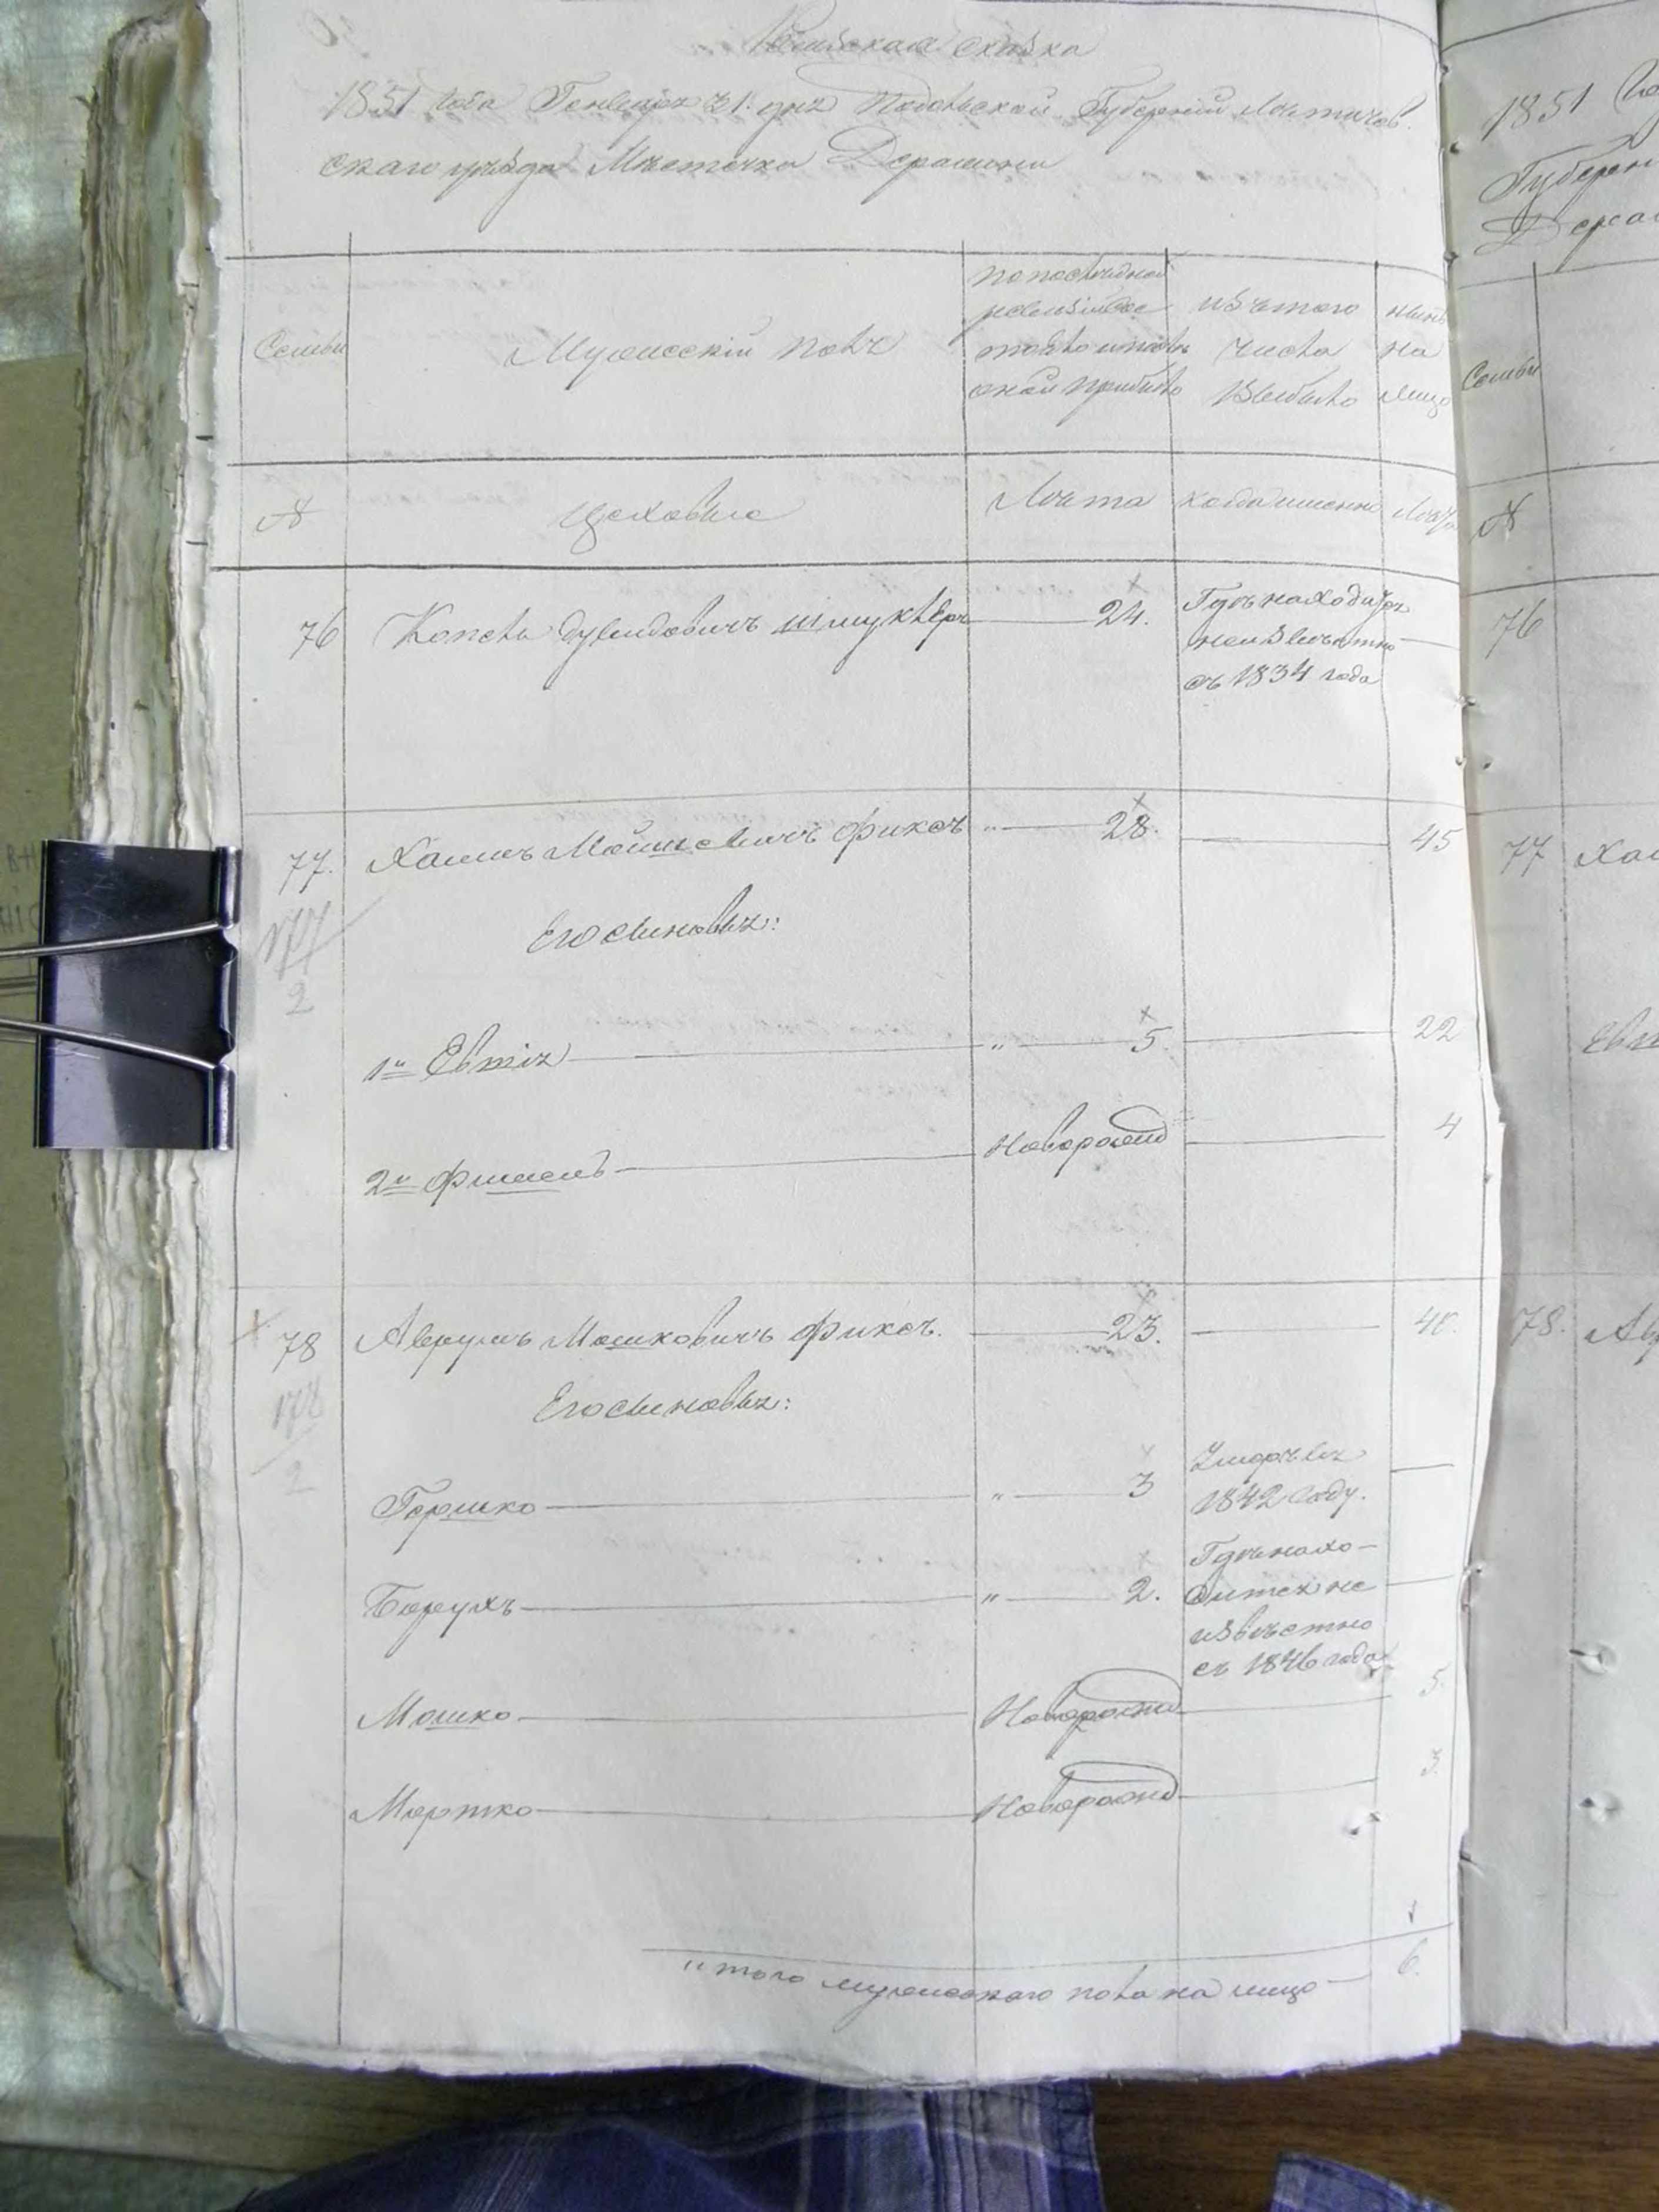 Ревизская сказка
1851 года Генваря 31. дня Подольской Губернии Летичев
скаго уѣзда Мѣстечка Деражни
Семьи
Мужескій полъ
по послѣдней
ревизіи со
стояло и послѣ
оной прибыло
изъ того
числа
выбыло
нынѣ
на
лицо
№
Цеховые
Лѣта
когда именно
Лѣта
76 Копель Дувидовичъ Шмуклеръ 24.
Гдѣ находится
неизвѣстно
съ 1834 года
77. Хаимъ Мошковичъ Фиксъ " 28. 45
177
2
Его сыновья:
1й Евтія " 5. 22
2й Фишель Новорожд 4
78 Аврумъ Мошковичъ Фиксъ. 23. 40.
178
2
Его сыновья:
Гершко " 3
Умеръ въ
1842 году.
Борухъ " 2.
Гдѣ нахо-
дится не
извѣстно
съ 1846 года
Мошко Новорожд 5.
Мортко Новорожд 3.
Итого мужескаго пола на лицо 6.
1851
Губерн
Дера
Семьи
№
76
77 Ха
Евт
78. Ав